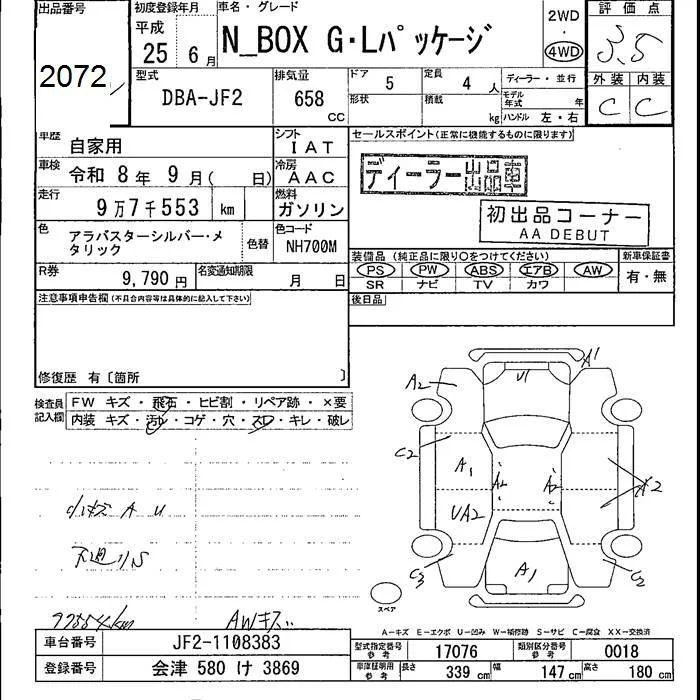 出品番号
2072
初度登録年月
平成
25 6月
車名・グレード
N_BOX G・Lパッケージ
2WD
4WD
評価点
3.5
型式
DBA-JF2
排気量
658 CC
ドア 5
形状
定員 4人
積載 kg
ディーラー・並行
モデル年式 年
ハンドル 左・右
外装 内装
C C
車歴 自家用
シフト IAT
車検 令和 8年 9月( 日)
冷房 AAC
走行 9万7千553 km
燃料 ガソリン
色 アラバスターシルバー・メタリック
色替
色コード NH700M
R券 9,790円
名変通知期限 月 日
セールスポイント(正常に機能するものに限ります)
ディーラー出品車
初出品コーナー
AA DEBUT
装備品 (純正品に限り○をつけてください)
新車保証書
PS PW ABS エアB AW
SR ナビ TV カワ
有・無
後日品
注意事項申告欄(不具合内容等は具体的に記入して下さい)
修復歴 有〔箇所 〕
検査員記入欄
FW キズ・飛石・ヒビ割・リペア跡・×要
内装 キズ・汚れ・コゲ・穴・スレ・キレ・破レ
小キズ A U
下廻りS
97554km
AWキズ
A1
U1
A2
C2
A1
A2
A2
A2
UA2
C3
A1
C2
スペア
A-キズ E-エクボ U-凹み W-補修跡 S-サビ C-腐食 XX-交換済
車台番号 JF2-1108383
登録番号 会津 580 け 3869
型式指定番号 参考 17076
類別区分番号 参考 0018
車庫証明用 参考 長さ 339 cm 幅 147 cm 高さ 180 cm